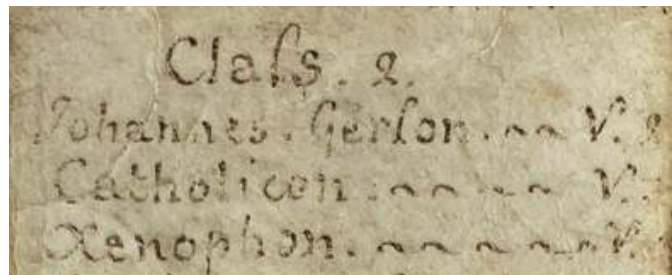 Claſs. 2.
Johannes. Gerſon. ~ ~ V. 2
Catholicon. ~ ~ ~ ~ V.
Xenophon. ~ ~ ~ ~ ~ V.